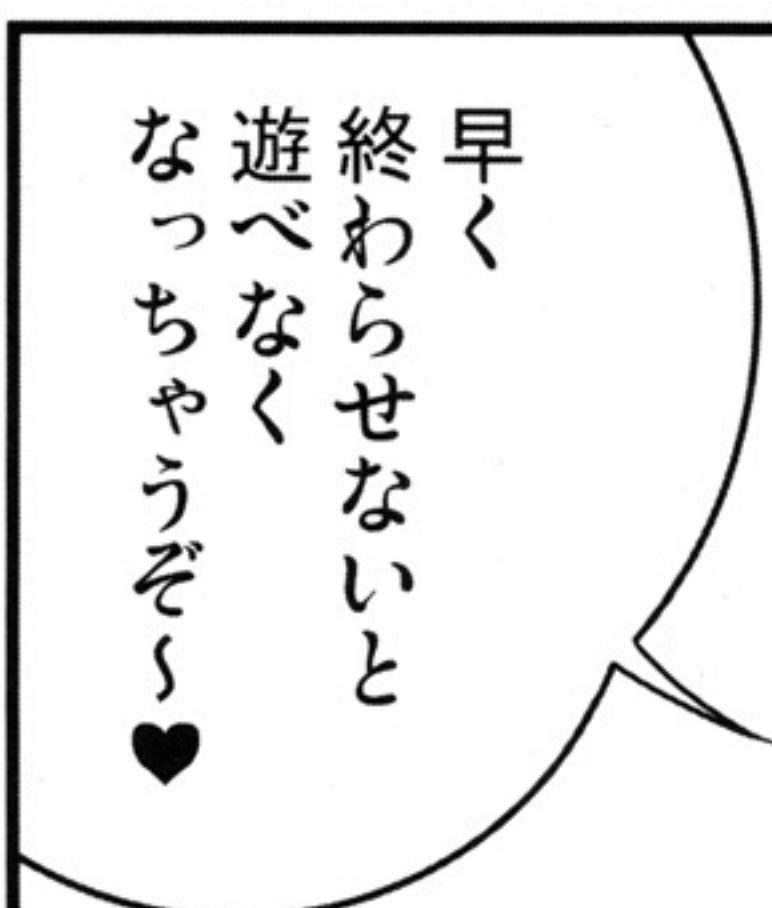 早く
終わらせないと
遊べなく
なっちゃうぞ〜♥